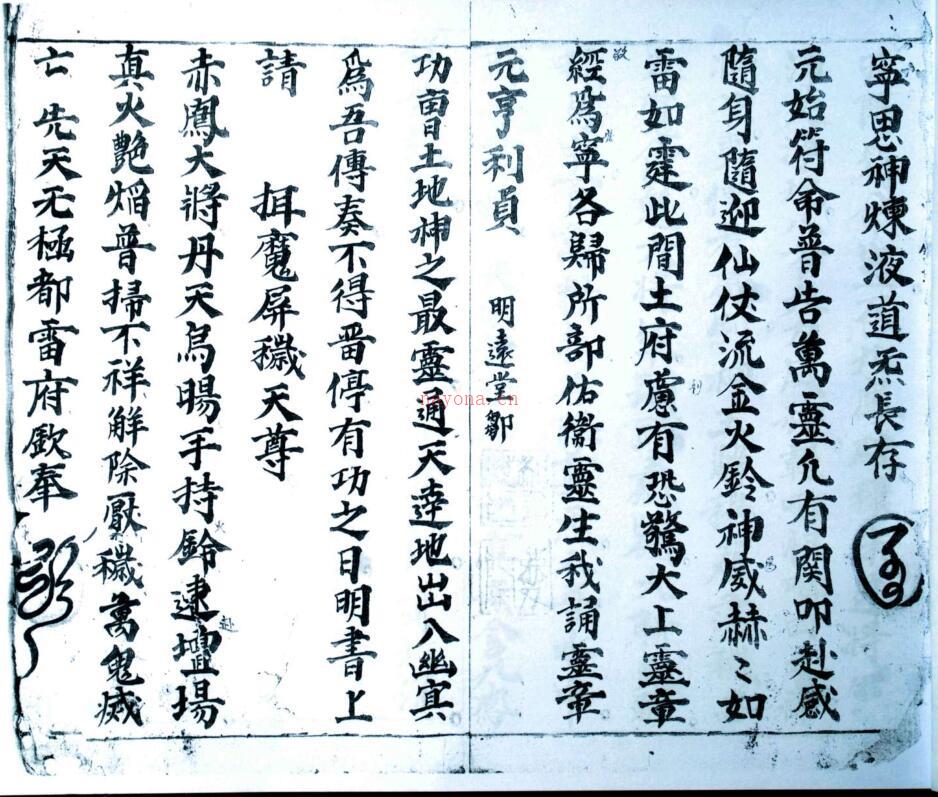 寧思神煉液道炁長存
元始符命普告萬靈允有関叩赴感
隨身隨迎仙仗流金火鈴神威赫〻如
雷如霆此間土府慮有恐驚大上靈章
經爲寧各歸所部佑衛靈生我誦靈章
元亨利貞 明遠堂鄒
功曹土地神之最靈通天達地出入幽㝠
爲吾傳奏不得畱停有功之日明書上
請 揖魔屏穢天尊
赤鳳大將丹天烏暘手持鈴逮壇場
真火艷焰普掃不祥解除厭穢萬鬼威
亡 先天无極都雷府欽奉
nayona.cn